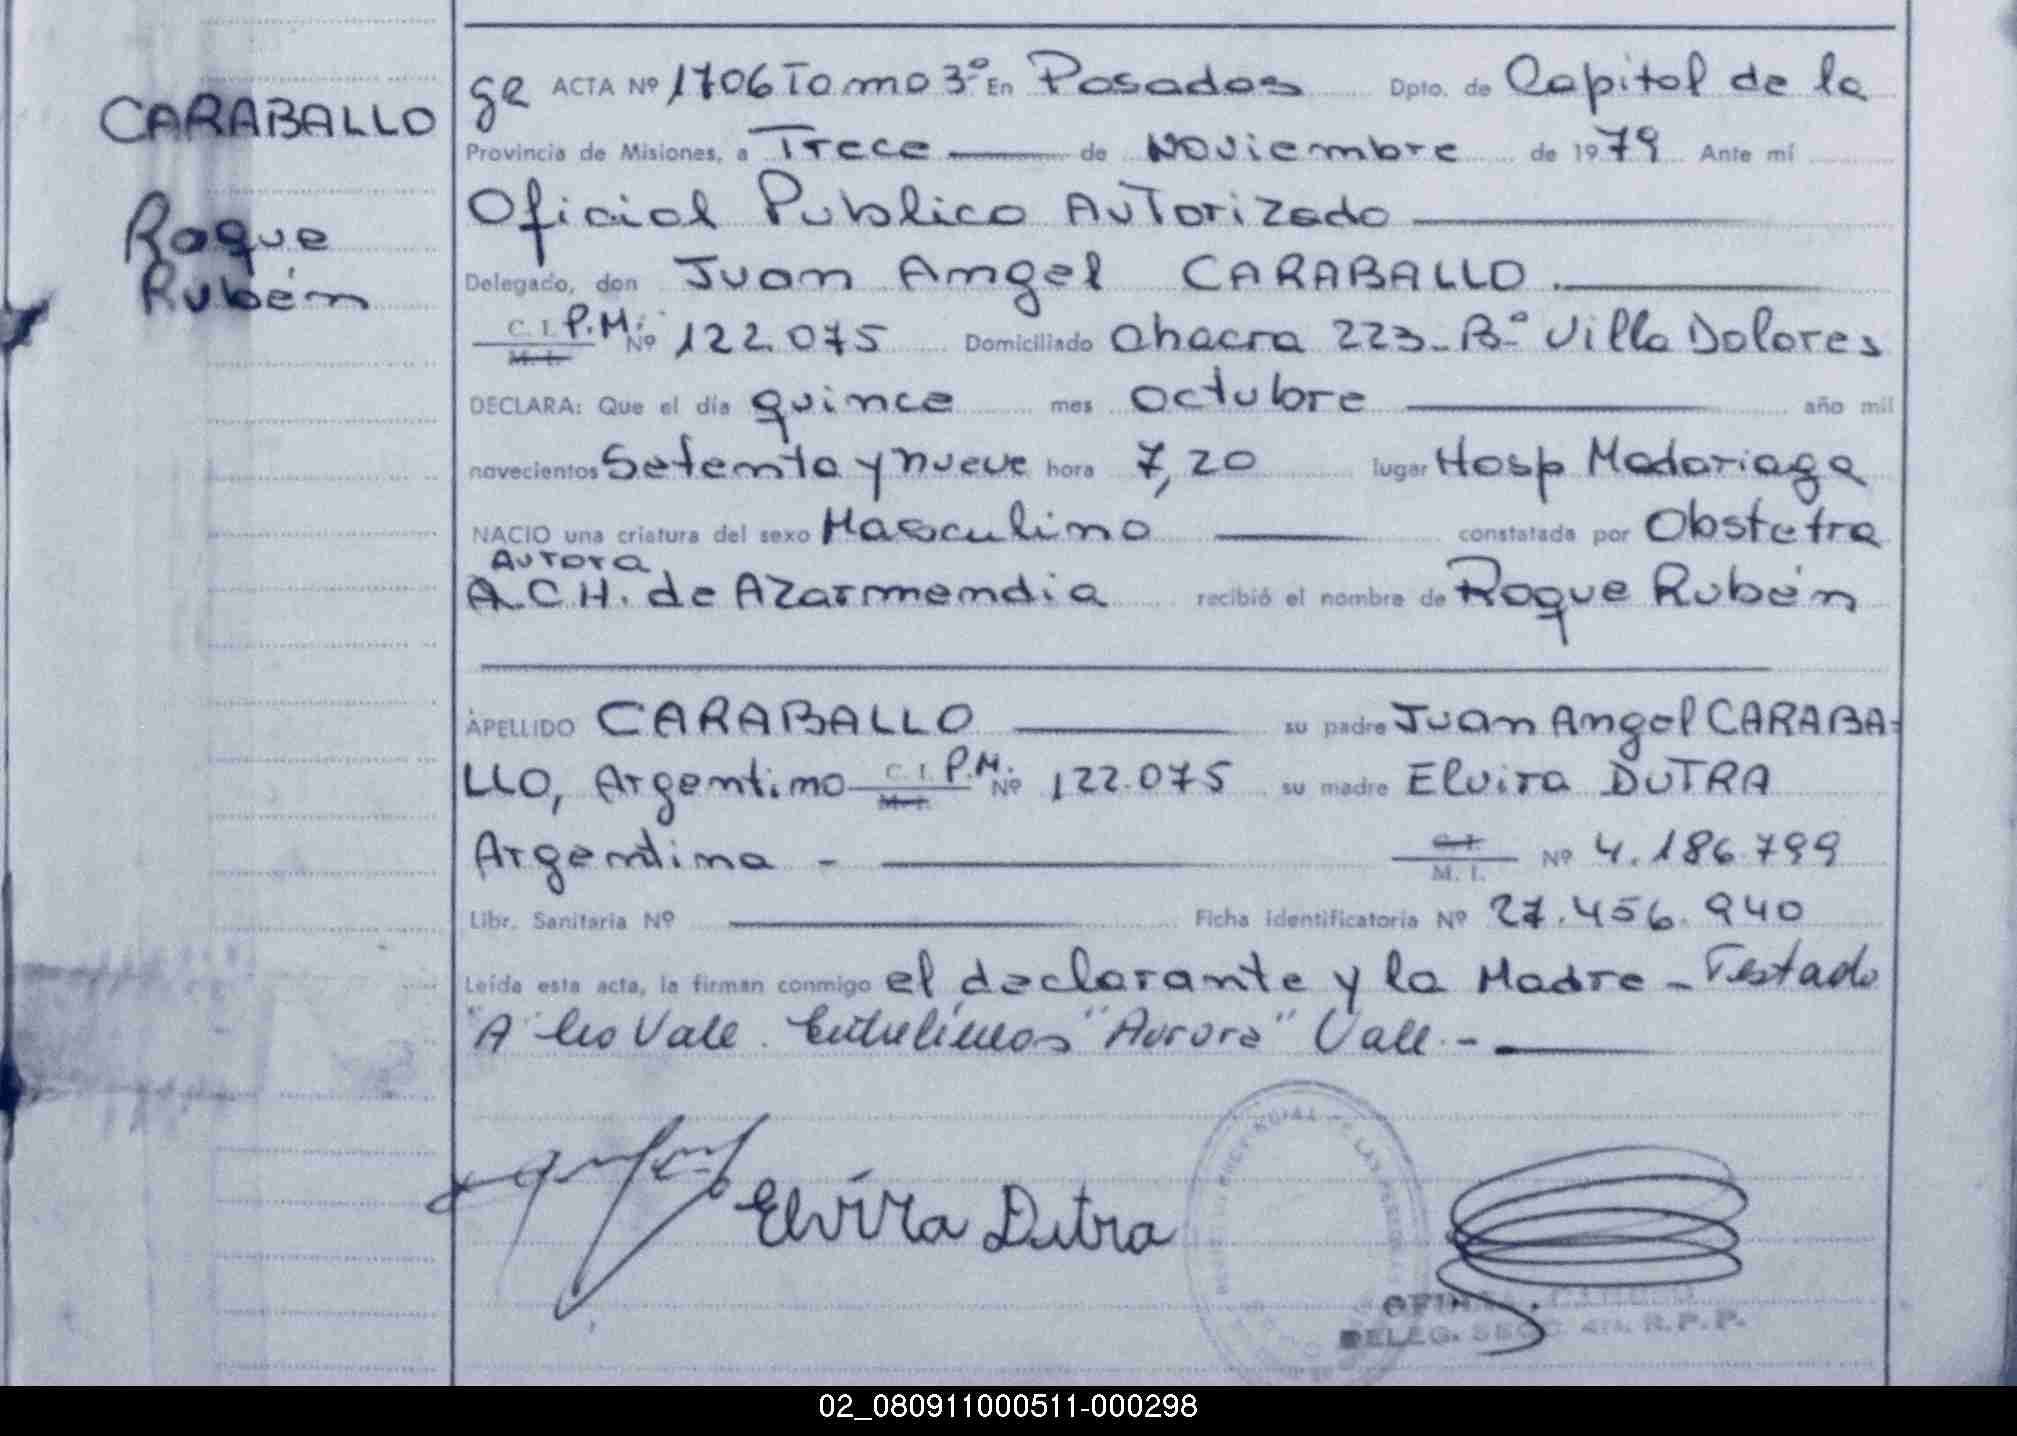 CARABALLO
Roque
Rubén
ge ACTA Nº 1706 Tomo 3º En Posadas Dpto. de Capital de la
Provincia de Misiones, a Trece de Noviembre de 1979 Ante mí
Oficial Publico Autorizado
Delegado, don Juan Angel CARABALLO.
C. I. P.M. M. I. Nº 122.075 Domiciliado Chacra 223- Bº Villa Dolores
DECLARA: Que el día quince mes Octubre año mil
novecientos Setenta y nueve hora 7,20 lugar Hosp Madariaga
NACIO una criatura del sexo Masculino constatada por Obstetra
Aurora
A.C.H. de Azarmendia recibió el nombre de Roque Rubén
APELLIDO CARABALLO su padre Juan Angel CARABA-
LLO, Argentino C. I. P.M. M. I. Nº 122.075 su madre Elvira DUTRA
Argentina - C. I. M. I. Nº 4.186.799
Libr. Sanitaria Nº Ficha identificatoria Nº 27.456.940
Leída esta acta, la firman conmigo el declarante y la Madre - Testado
"A" No Vale. Entrelineas "Aurora" Vale.-
Elvira Dutra
DELEG. SECC. 4ta. R.P.P.
02_080911000511-000298